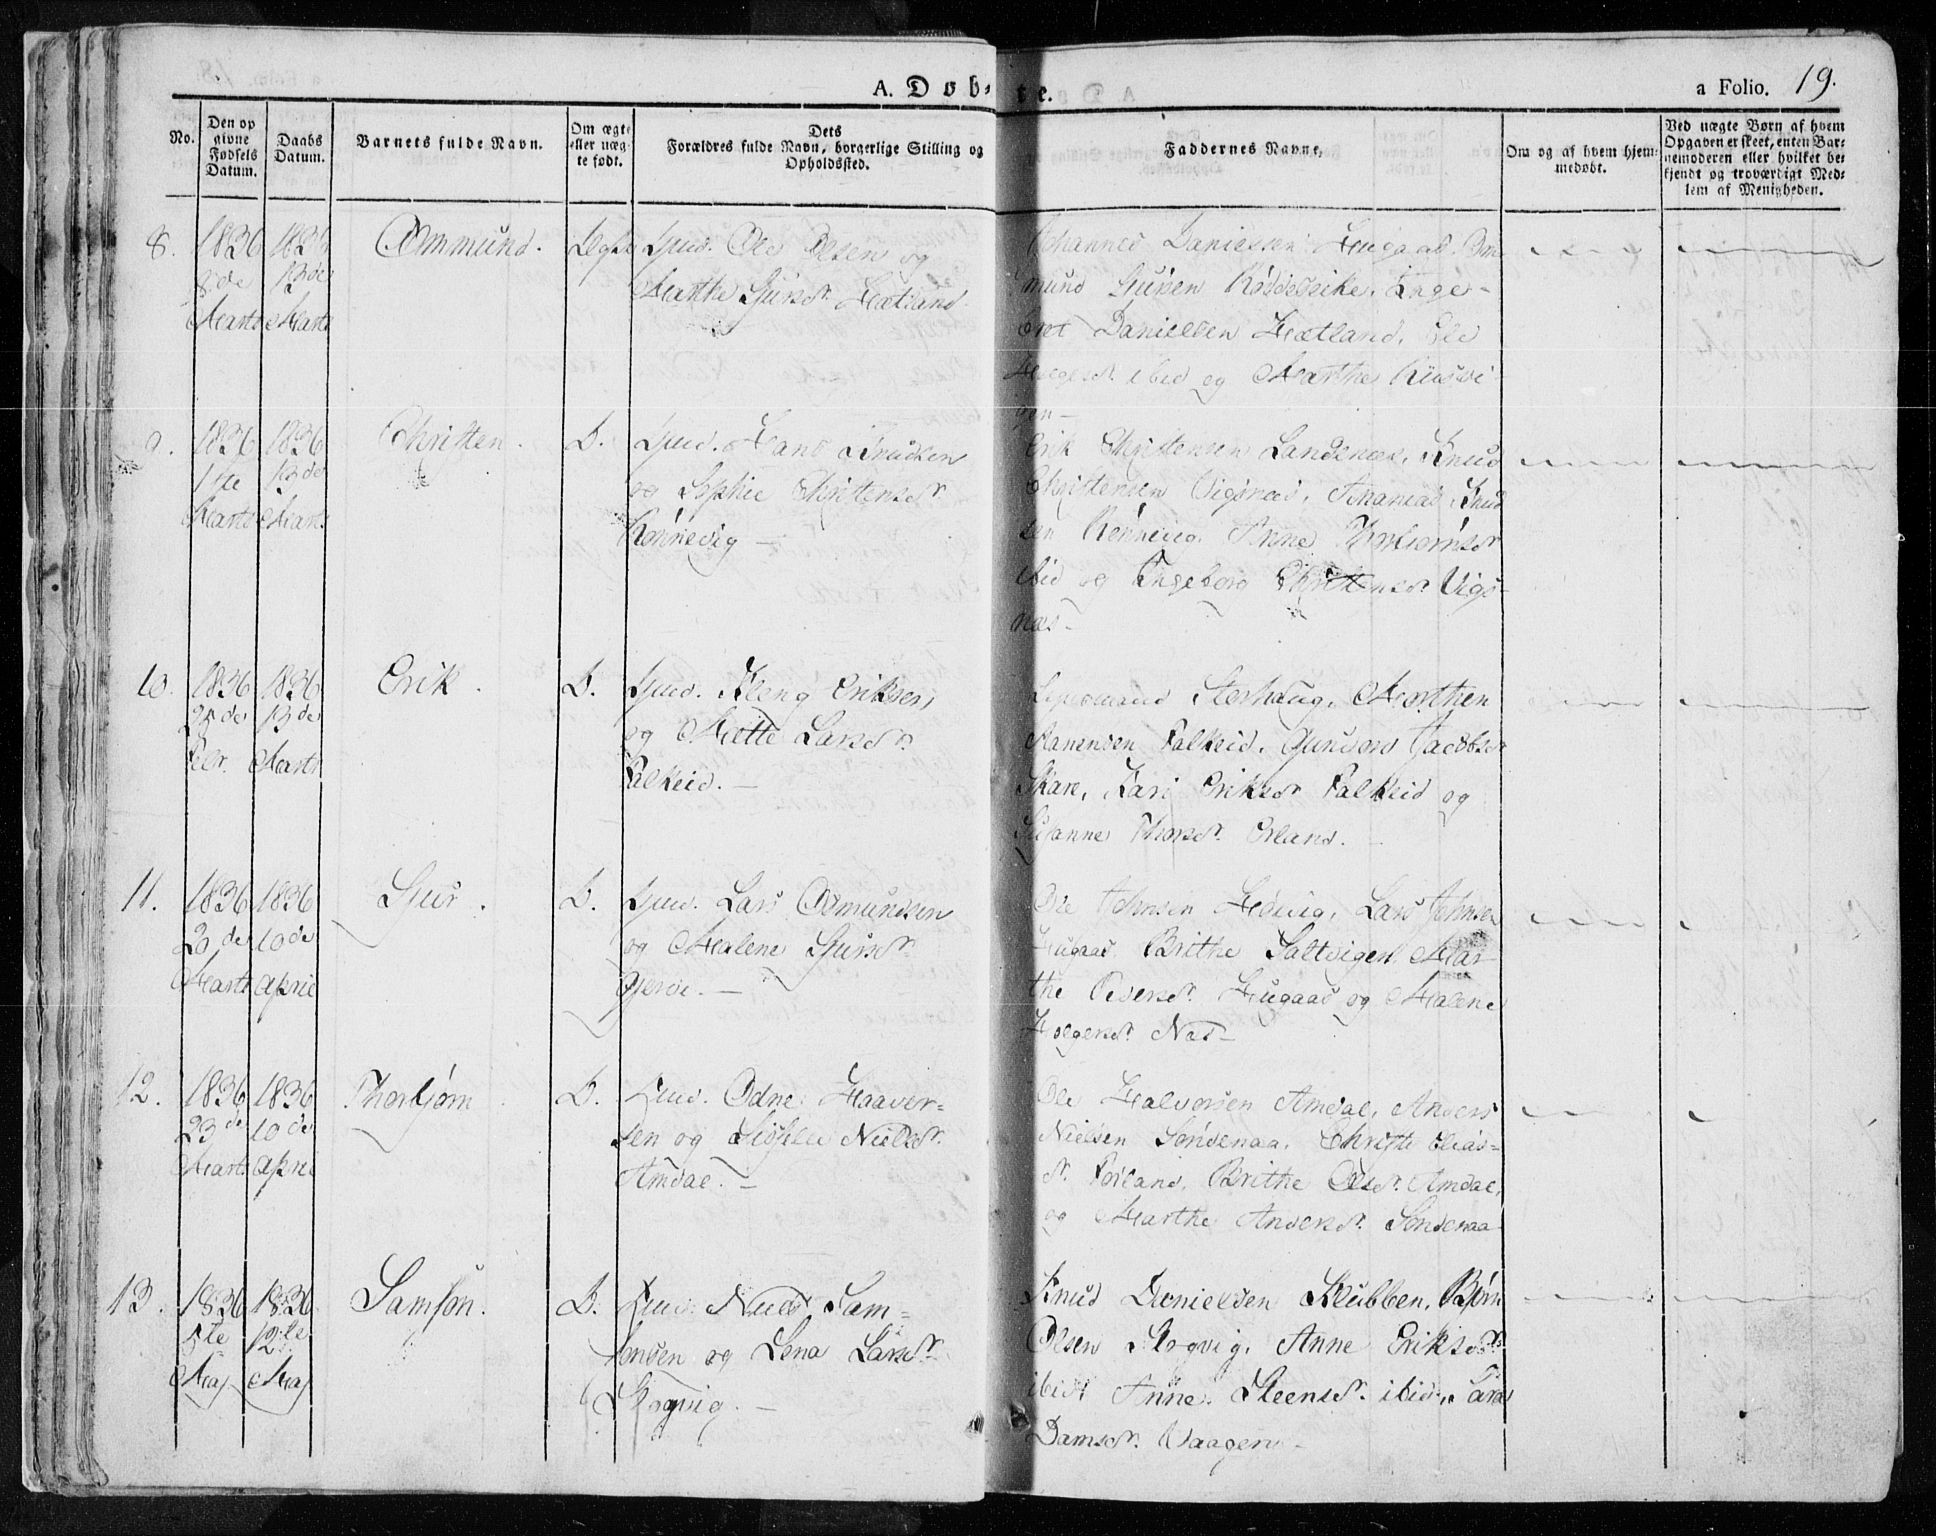 A. Døbte.
a Folio. 19.
No.
Den opgivne Fødsels Datum.
Daabs Datum.
Barnets fulde Navn.
Om ægte eller uægte født.
Dets Forældres fulde Navn, borgerlige Stilling og Opholdssted.
Faddernes Navne.
Om og af hvem hjemmedøbt.
Ved uægte Børn af hvem Opgaven er skeet, enten Barnemoderen eller hvilket bekjendt og troværdigt Medlem af Menigheden.
8. 1836 8de Marts
1836 13de Marts
Ommund.
Ægte
Gmd. Ole Olsen og
Marthe Sjursdr. Hætland
Johannes Danielsen Hugaas. Om-
mund Sjursen Røddelsike, Enge-
bret Danielsen Hætland,
ibid og Marthe
9. 1836 1ste Marts
1836 13de Marts
Christen.
D.
Gmd. Hans Knudsen
og Sophie Christensdr.
Rønnevig —
Erik Christensen Landsnæs, Knud
Christensen Vigsnæs, Ananias Knud
sen Rønnevig, Anne Thorbjørnsdr
ibid og Ingeborg Christensdr. Vigs-
næs —
10. 1836 25de Febr.
1836 13de Marts
Erik.
D.
Gmd. Kleng Eriksen
og Mætte Larsdr.
Falkeid. —
Storhaug, Morthen
Falkeid, Gunvor Jacobsdr
Skare, Kari Eriksdr Falkeid og
Susanne Thorsdr. Erland.
11. 1836 20de Marts
1836 10de April
Sjur.
D.
Gmd. Lars Osmundsen
og Malene Sjursdr.
Gjerde. —
Ole Johnsen Hedvig, Lars Johnsen
Hugaas, Brithe Saltvigen, Mar-
the Pedersdr. Hugaas og Malene
Holgersdr. Næs —
12. 1836 23de Marts
1836 10de April
Thorbjørn
D.
Gmd. Odne Haaver-
sen og Nielsdr.
Amdal. —
Ole Halvorsen Amdal, Anders
Nielsen Søndenaa, Christi Elias-
dr. Førland, Brithe Olsdr. Amdal,
og Marthe Andersdr. Søndenaa
13. 1836 5te Maj
1836 12te Maj
Samson.
D.
Gmd. Niels Sam-
sonsen og Lena Larsdr.
Skogvig. —
Knud Danielsen Klubben, Bjørn
Olsen Skogvig, Anne Eriksdr.
ibid Anne Steensdr. ibid,
Damsdr. Vaagen —